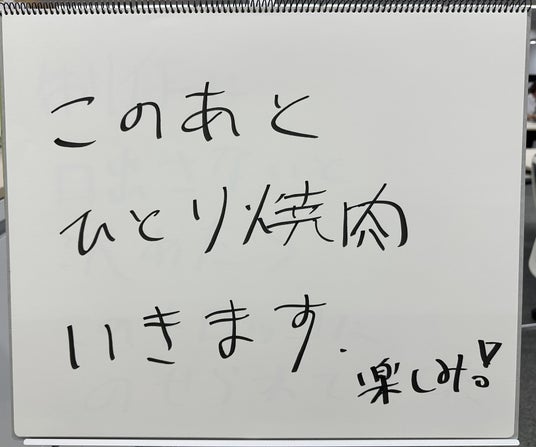 このあと
ひとり焼肉
いきます.
楽しみ!